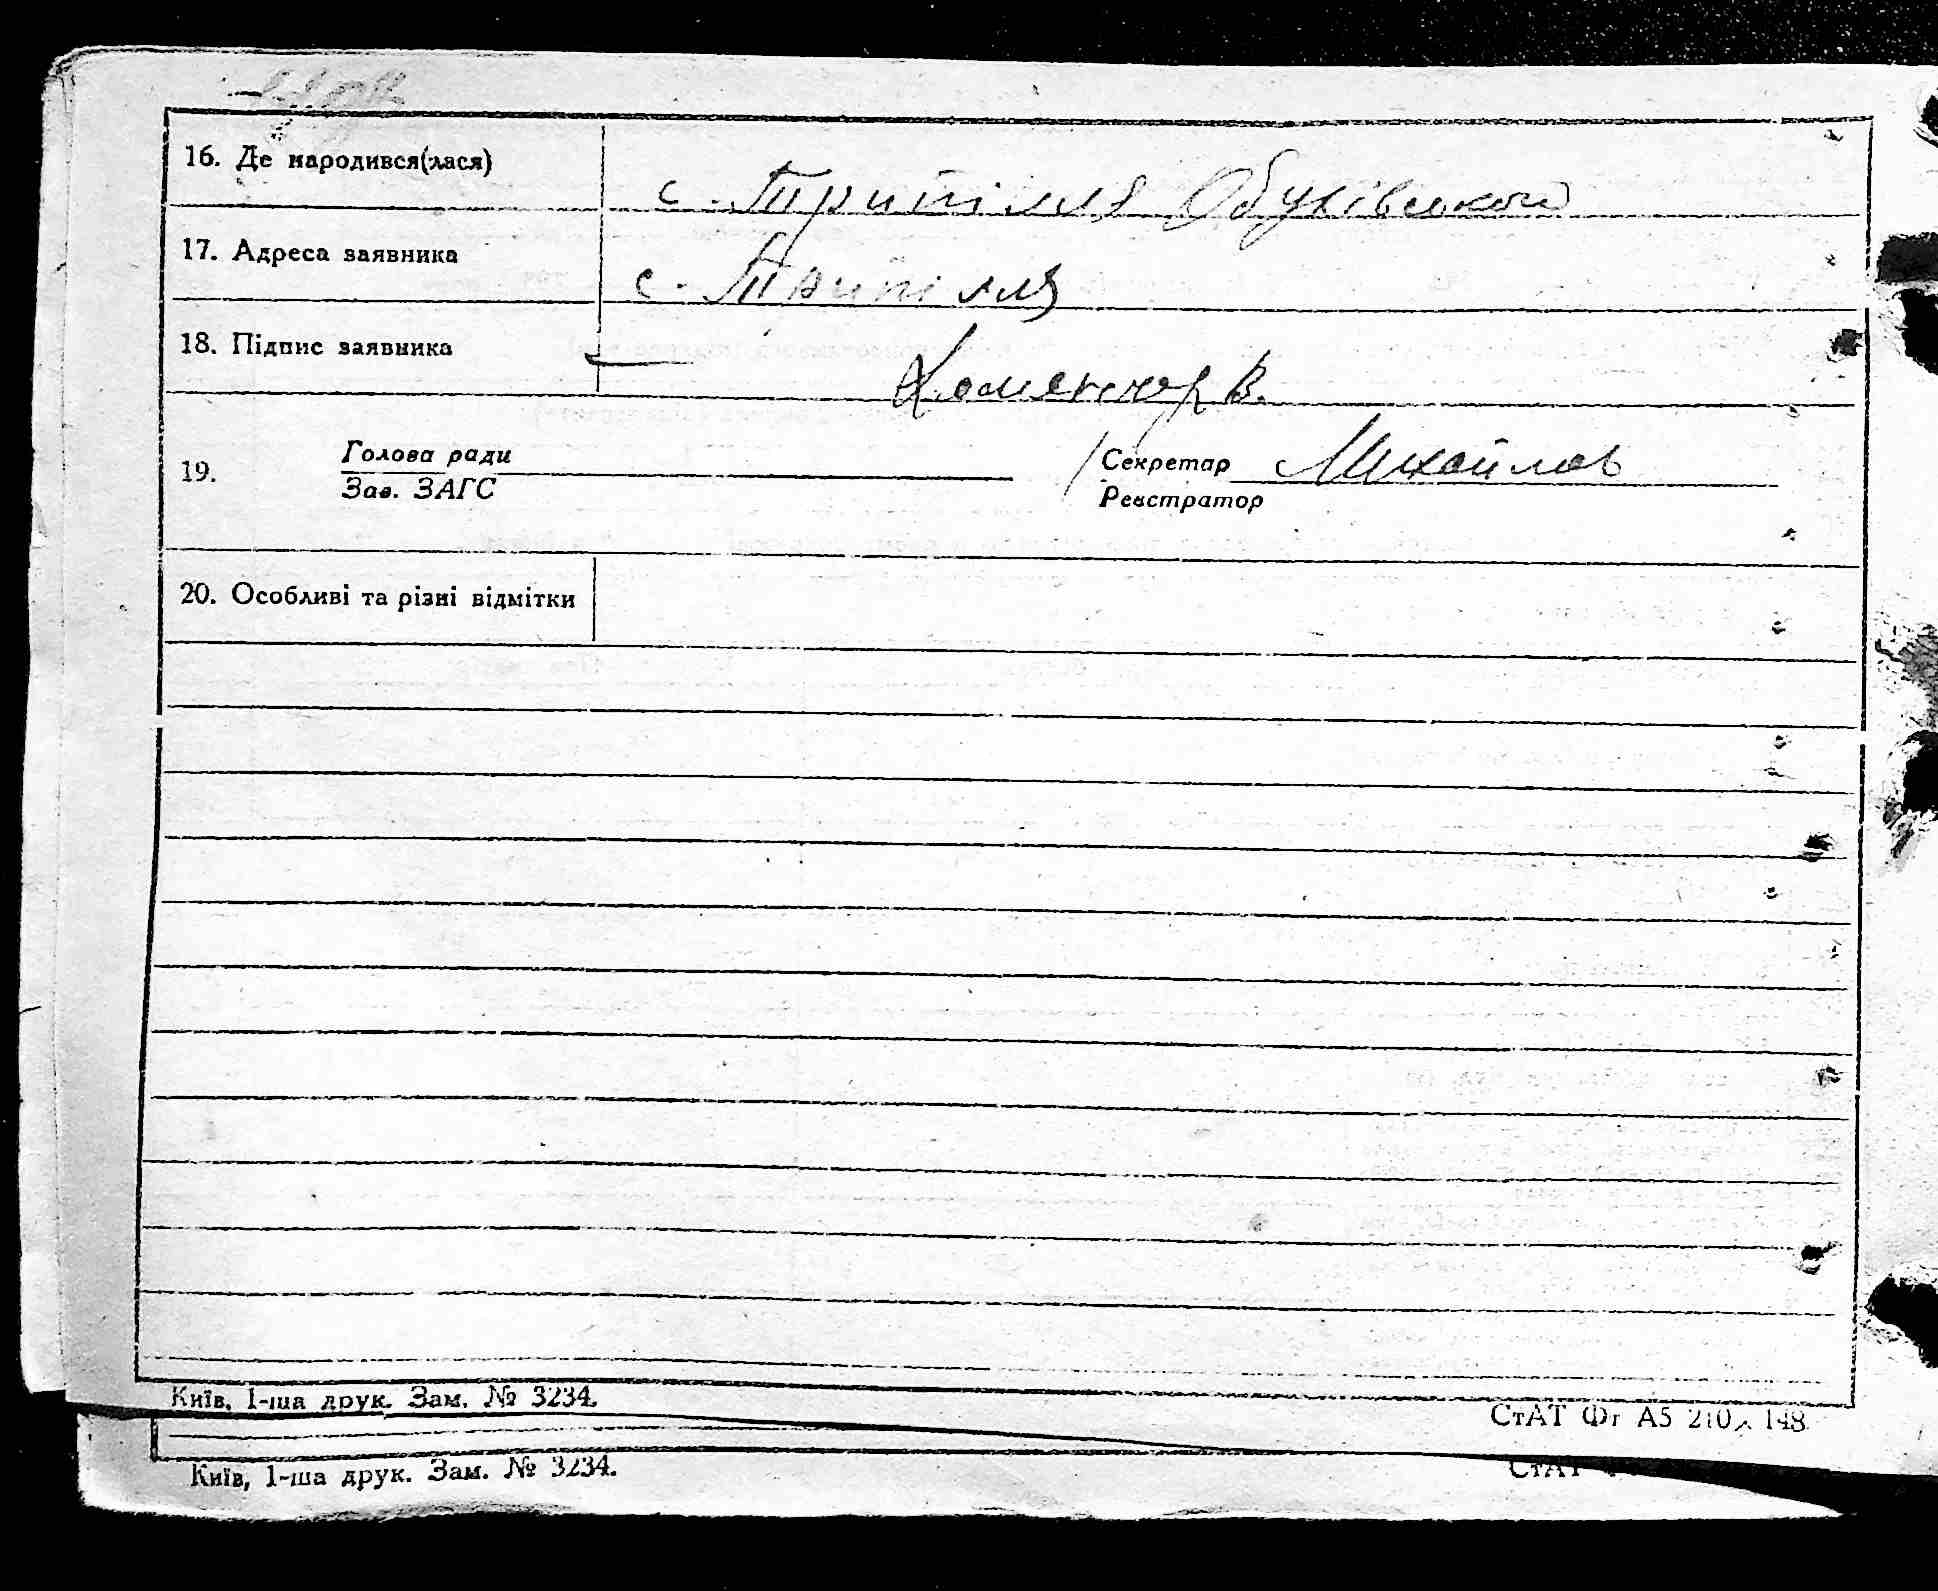 16. Де народився(лася) с. Трипілля Обухівського
17. Адреса заявника с. Трипілля
18. Підпис заявника В.
19. Голова ради Секретар Михайлов
Зав. ЗАГС Реєстратор
20. Особливі та різні відмітки
Київ, 1-ша друк. Зам. № 3234.
СтАТ Фг А5 210 × 148
Київ, 1-ша друк. Зам. № 3234.